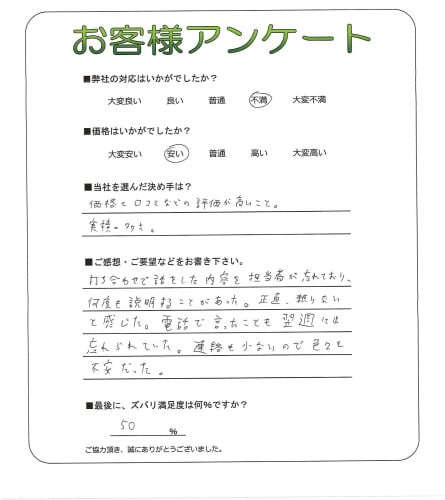 お客様アンケート
■弊社の対応はいかがでしたか？
大変良い 良い 普通 不満 大変不満
■価格はいかがでしたか？
大変安い 安い 普通 高い 大変高い
■当社を選んだ決め手は？
価格と口コミなどの評価が高いこと。
実積の多さ。
■ご感想・ご要望などをお書き下さい。
打ち合わせで話をした内容を担当者が忘れており、
何度も説明することがあった。正直、頼りない
と感じた。電話で言ったことも翌週には
忘れられていた。連絡も少ないので色々と
不安だった。
■最後に、ズバリ満足度は何%ですか？
50 %
ご協力頂き、誠にありがとうございました。